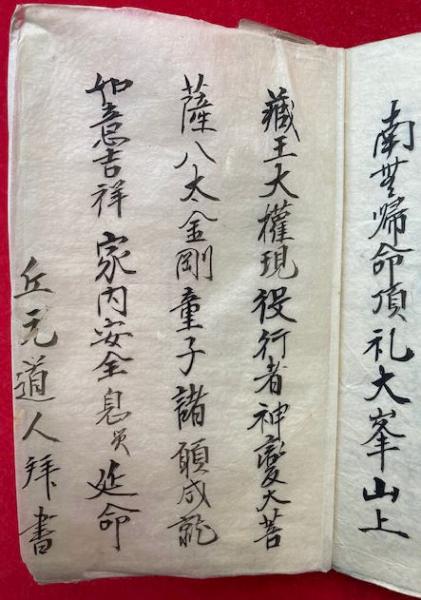 南無帰命頂礼大峯山上
藏王大權現役行者神變大菩
薩八大金剛童子諸願成就
如意吉祥家内安全息災延命
丘元道人拜書